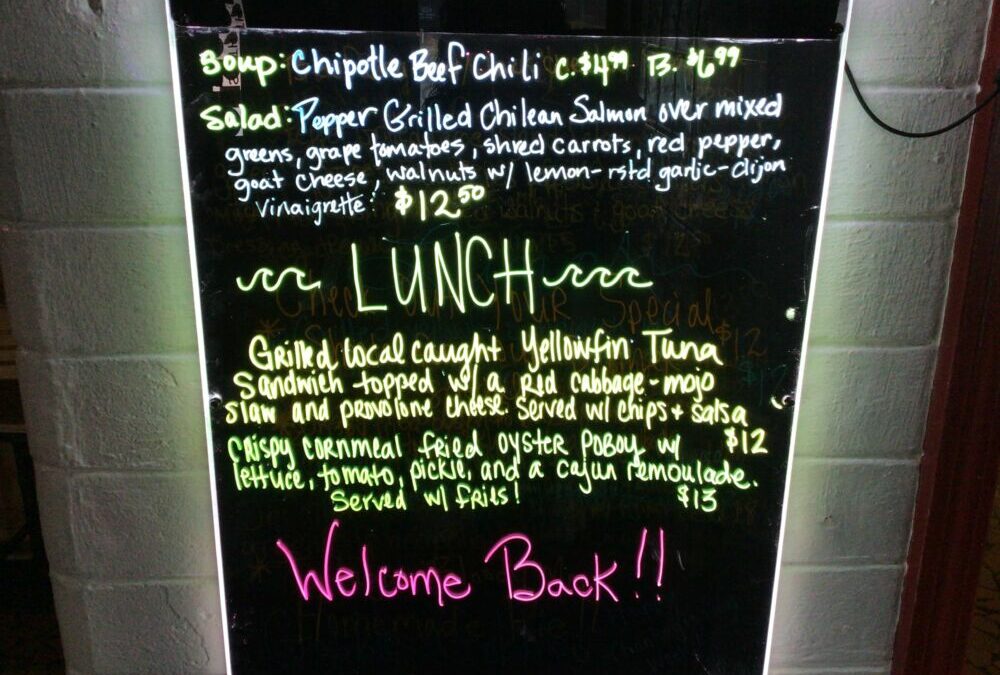 Soup: Chipotle Beef Chili C. $4.99 B. $6.99
Salad: Pepper Grilled Chilean Salmon over mixed
greens, grape tomatoes, shred carrots, red pepper,
goat cheese, walnuts w/ lemon-rstd garlic-dijon
vinaigrette! $12.50
LUNCH
Grilled local caught Yellowfin Tuna
Sandwich topped w/ a Red cabbage-mojo
slaw and provolone cheese. Served w/ chips + salsa
$12
Crispy cornmeal fried oyster poboy w/
lettuce, tomato, pickle, and a cajun remoulade.
Served w/ fries! $13
Welcome Back!!